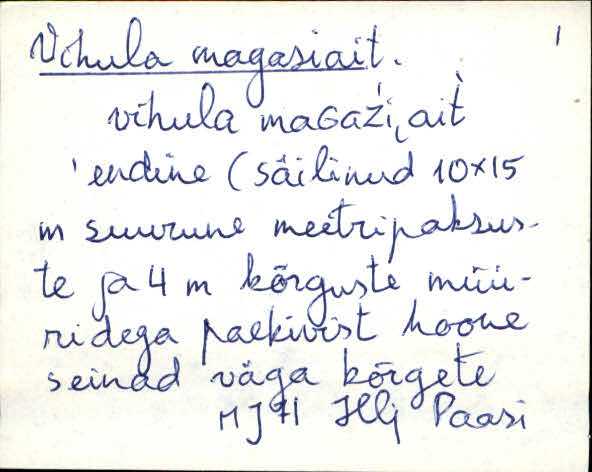 Vihula magasiait. 1
vihula maGaźi͔ ait̀
'endine (säilinud 10x15
m suurune meetripaksus-
te ja 4 m kõrguste müü-
ridega paekivist hoone
seinad väga kõrgete
MJH Hlj Paasi